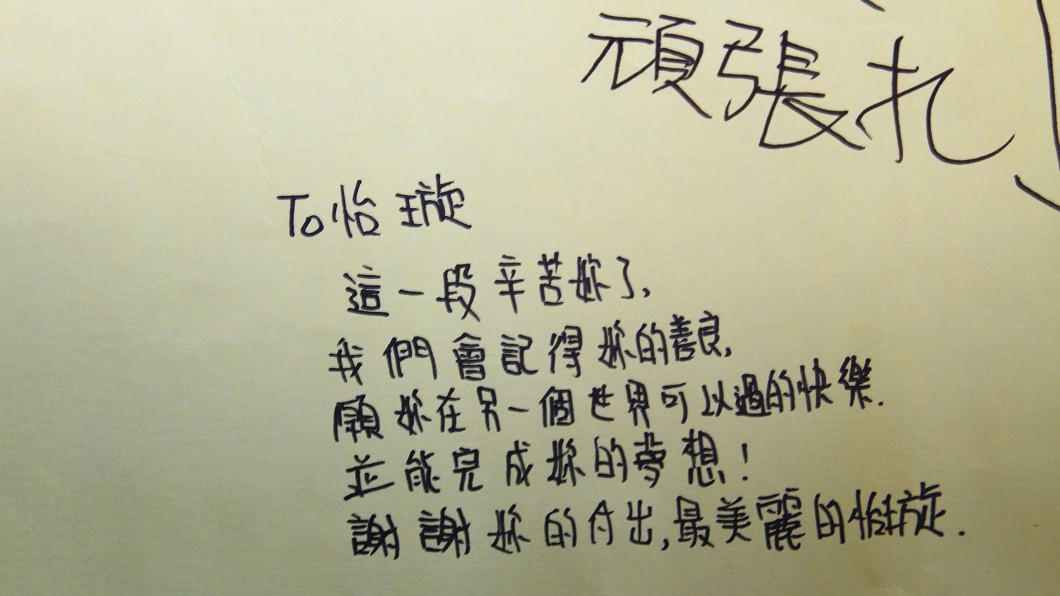 頑張扎
To 怡璇
這一段辛苦妳了,
我們會記得妳的善良,
願妳在另一個世界可以過的快樂.
並能完成妳的夢想!
謝謝妳的付出,最美麗的怡璇.